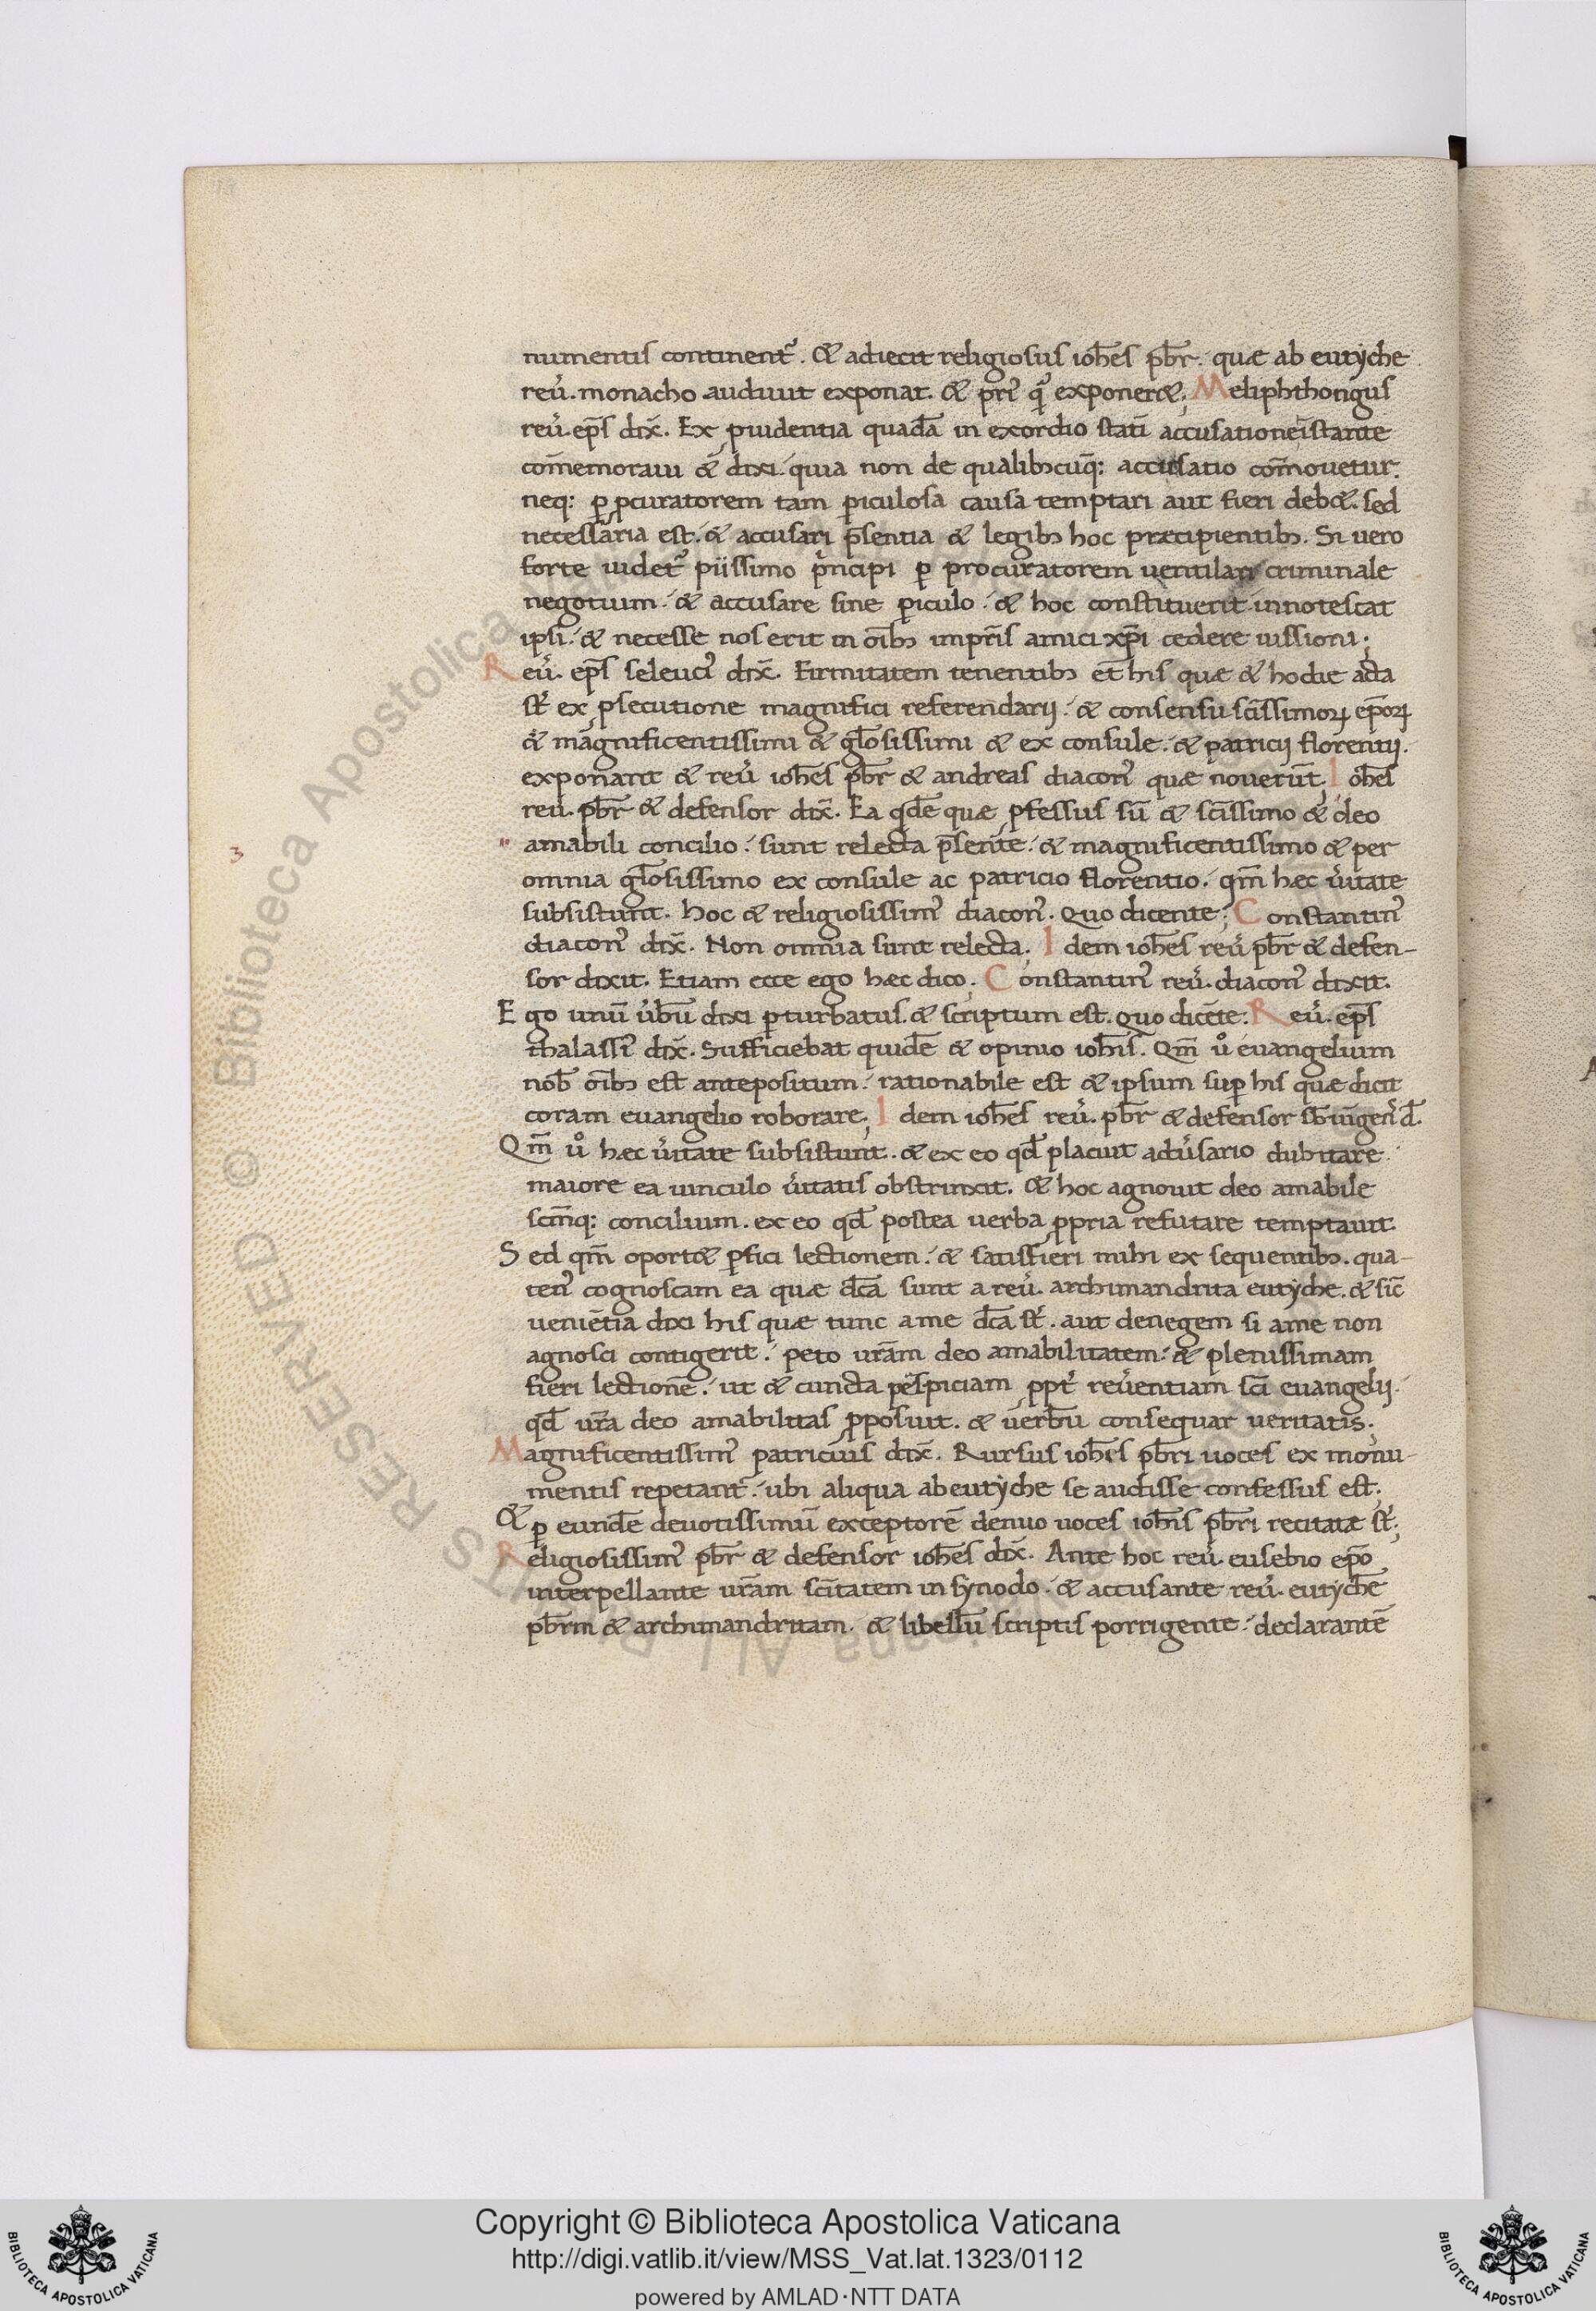 numentis continent᷑. & adiecit religiosus ioh̅es pb̅r. quæ ab eutẏche
reu᷑. monacho audiuit exponat. & pri᷑ q᷑ exponer&; Meliphthongus
reu᷑. ep̅s dix̅. Ex puidentia quadā in exordio statī accusatione īstante
com̅emoraui & dixi. quia non de qualibꝫcūq: accusatio com̅ouetur.
neq: ꝑ ꝓcuratorem tam ꝑiculosa causa temptari aut fieri deb&. sed
necessaria est. & accusari p̅sentia & legibꝫ hoc præcipientibꝫ. Si uero
forte uidet᷑ piissimo p᷑ncipi ꝑ procuratorem uentilari criminale
negotium. & accusare sine ꝑiculo. & hoc constituerit innotescat
ipsi. & necesse nos erit in oīb; impr̅is amici xp̅i cedere iussioni;
Reu᷑. ep̅s seleuci᷑ dix̅. Firmitatem tenentibꝫ et̅ his quæ & hodie acta
st᷑ ex ꝓsecutione magnifici referendarij. & consensu sc̅issimoꝝ ep̅oꝝ
& magnificentissimi & gl̅osissimi & ex consule. & patricij florentij.
exponant & reu᷑ ioh̅es pb̅r & andreas diacon᷑ quæ nouerūt; Ioh̅es
reu᷑. pb̅r & defensor dix̅. Ea qd̅e quæ ꝓfessus sū & sc̅issimo & deo
3 amabili concilio. sunt relecta p̅sente. & magnificentissimo & per
omnia gl̅osissimo ex consule ac patricio florentio. qm̅ hæc u᷑itate
subsistunt. hoc & religiosissim᷑ diacon᷑. Quo dicente; Constantin᷑
diacon᷑ dix̅. Non omnia sunt relecta; Idem ioh̅es reu᷑ pb̅r & defen-
sor dixit. Etiam ecce ego hæc dico; Constantin᷑ reu᷑. diacon᷑ dixit.
Ego unū u᷑bū dixi ꝑturbatus. & scriptum est. Quo dicēte: Reu᷑. ep̅s
thalassi᷑ dix̅. Sufficiebat quidē & opinio ioh̅is. Qm̅ uͦ euangelium
nob̅ oībꝫ est antepositum. rationabile est & ipsum suꝑ his quæ dicit
coram euangelio roborare; Idem ioh̅es reu᷑. pb̅r & defensor sb̅iūgen᷑ d̅.
Qm̅ uͦ hæc u᷑itate subsistunt. & ex eo qd̅ placuit adu᷑sario dubitare.
maiore ea uinculo u᷑itatis obstrinxit. & hoc agnouit deo amabile
sc̅mq: concilium. ex eo qd̅ postea uerba ꝓpria refutare temptauit.
Sed qm̅ oport& ꝑfici lectionem. & satisfieri mihi ex sequentibꝫ. qua-
ten᷑ cognoscam ea quæ dc̅a sunt a reu᷑. archimandrita eutẏche. & sic̅
ueniētia dixi his quæ tunc a me dc̅a st᷑. aut denegem si a me non
agnosci contigerit. peto ur̅am deo amabilitatem. & plenissimam
fieri lectionē. ut & cuncta pe᷑spiciam ꝓpt᷑ reu᷑entiam sc̅i euangelij.
qd̅ ur̅a deo amabilitas ꝓposuit. & uerbū consequar ueritatis.
Magnificentissim᷑ patricius dix̅. Rursus ioh̅is pb̅ri uoces ex monu-
mentis repetant᷑. ubi aliqua ab eutẏche se audisse confessus est;
& ꝑ eundē deuotissimū exceptorē denuo uoces ioh̅is pb̅ri recitatæ st᷑;
Religiosissim᷑ pb̅r & defensor ioh̅es dix̅. Ante hoc reu᷑. eusebio ep̅o
interpellante ur̅am sc̅itatem in sẏnodo. & accusante reu᷑. eutẏchē
pb̅rm & archimandritam. & libellū scriptis porrigente. declarantē
Copyright © Biblioteca Apostolica Vaticana
http://digi.vatlib.it/view/MSS_Vat.lat.1323/0112
powered by AMLAD·NTT DATA